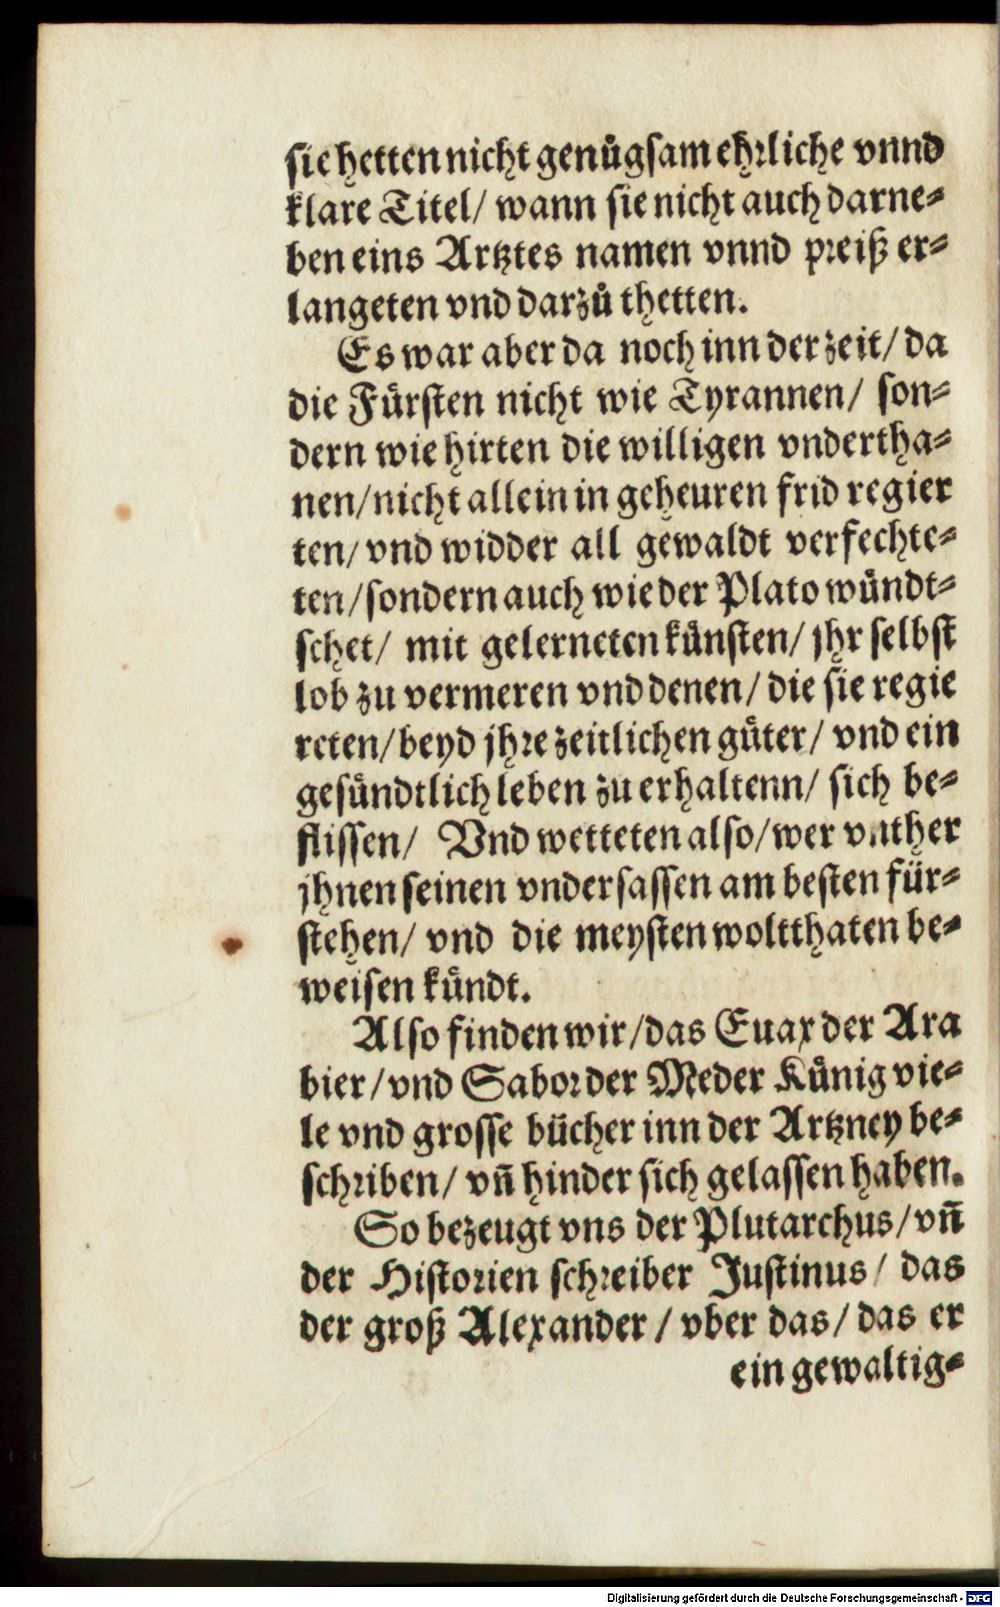 sie hetten nicht genuͤgsam ehrliche vnnd
klare Titel/ wann sie nicht auch darne⸗
ben eins Artztes namen vnnd preiß er⸗
langeten vnd darzuͦ thetten.
Es war aber da noch inn der zeit/ da
die Fürsten nicht wie Tyrannen/ son⸗
dern wie hirten die willigen vndertha⸗
nen/ nicht allein in geheuren frid regier
ten/ vnd widder all gewaldt verfechte⸗
ten/ sondern auch wie der Plato wuͤndt⸗
schet/ mit gelerneten kuͤnsten/ jhr selbst
lob zu vermeren vnd denen/ die sie regie
reten/ beyd jhre zeitlichen guͤter/ vnd ein
gesuͤndtlich leben zu erhaltenn/ sich be⸗
flissen/ Vnd wetteten also/ wer vnther
jhnen seinen vndersassen am besten für⸗
stehen/ vnd die meysten woltthaten be⸗
weisen kuͤndt.
Also finden wir/ das Euax der Ara
bier/ vnd Sabor der Meder Kuͤnig vie⸗
le vnd grosse bücher inn der Artzney be⸗
schriben/ vn̄ hinder sich gelassen haben.
So bezeugt vns der Plutarchus/ vn̄
der Historien schreiber Justinus/ das
der groß Alexander/ vber das/ das er
ein gewaltig⸗
Digitalisierung gefördert durch die Deutsche Forschungsgemeinschaft - DFG